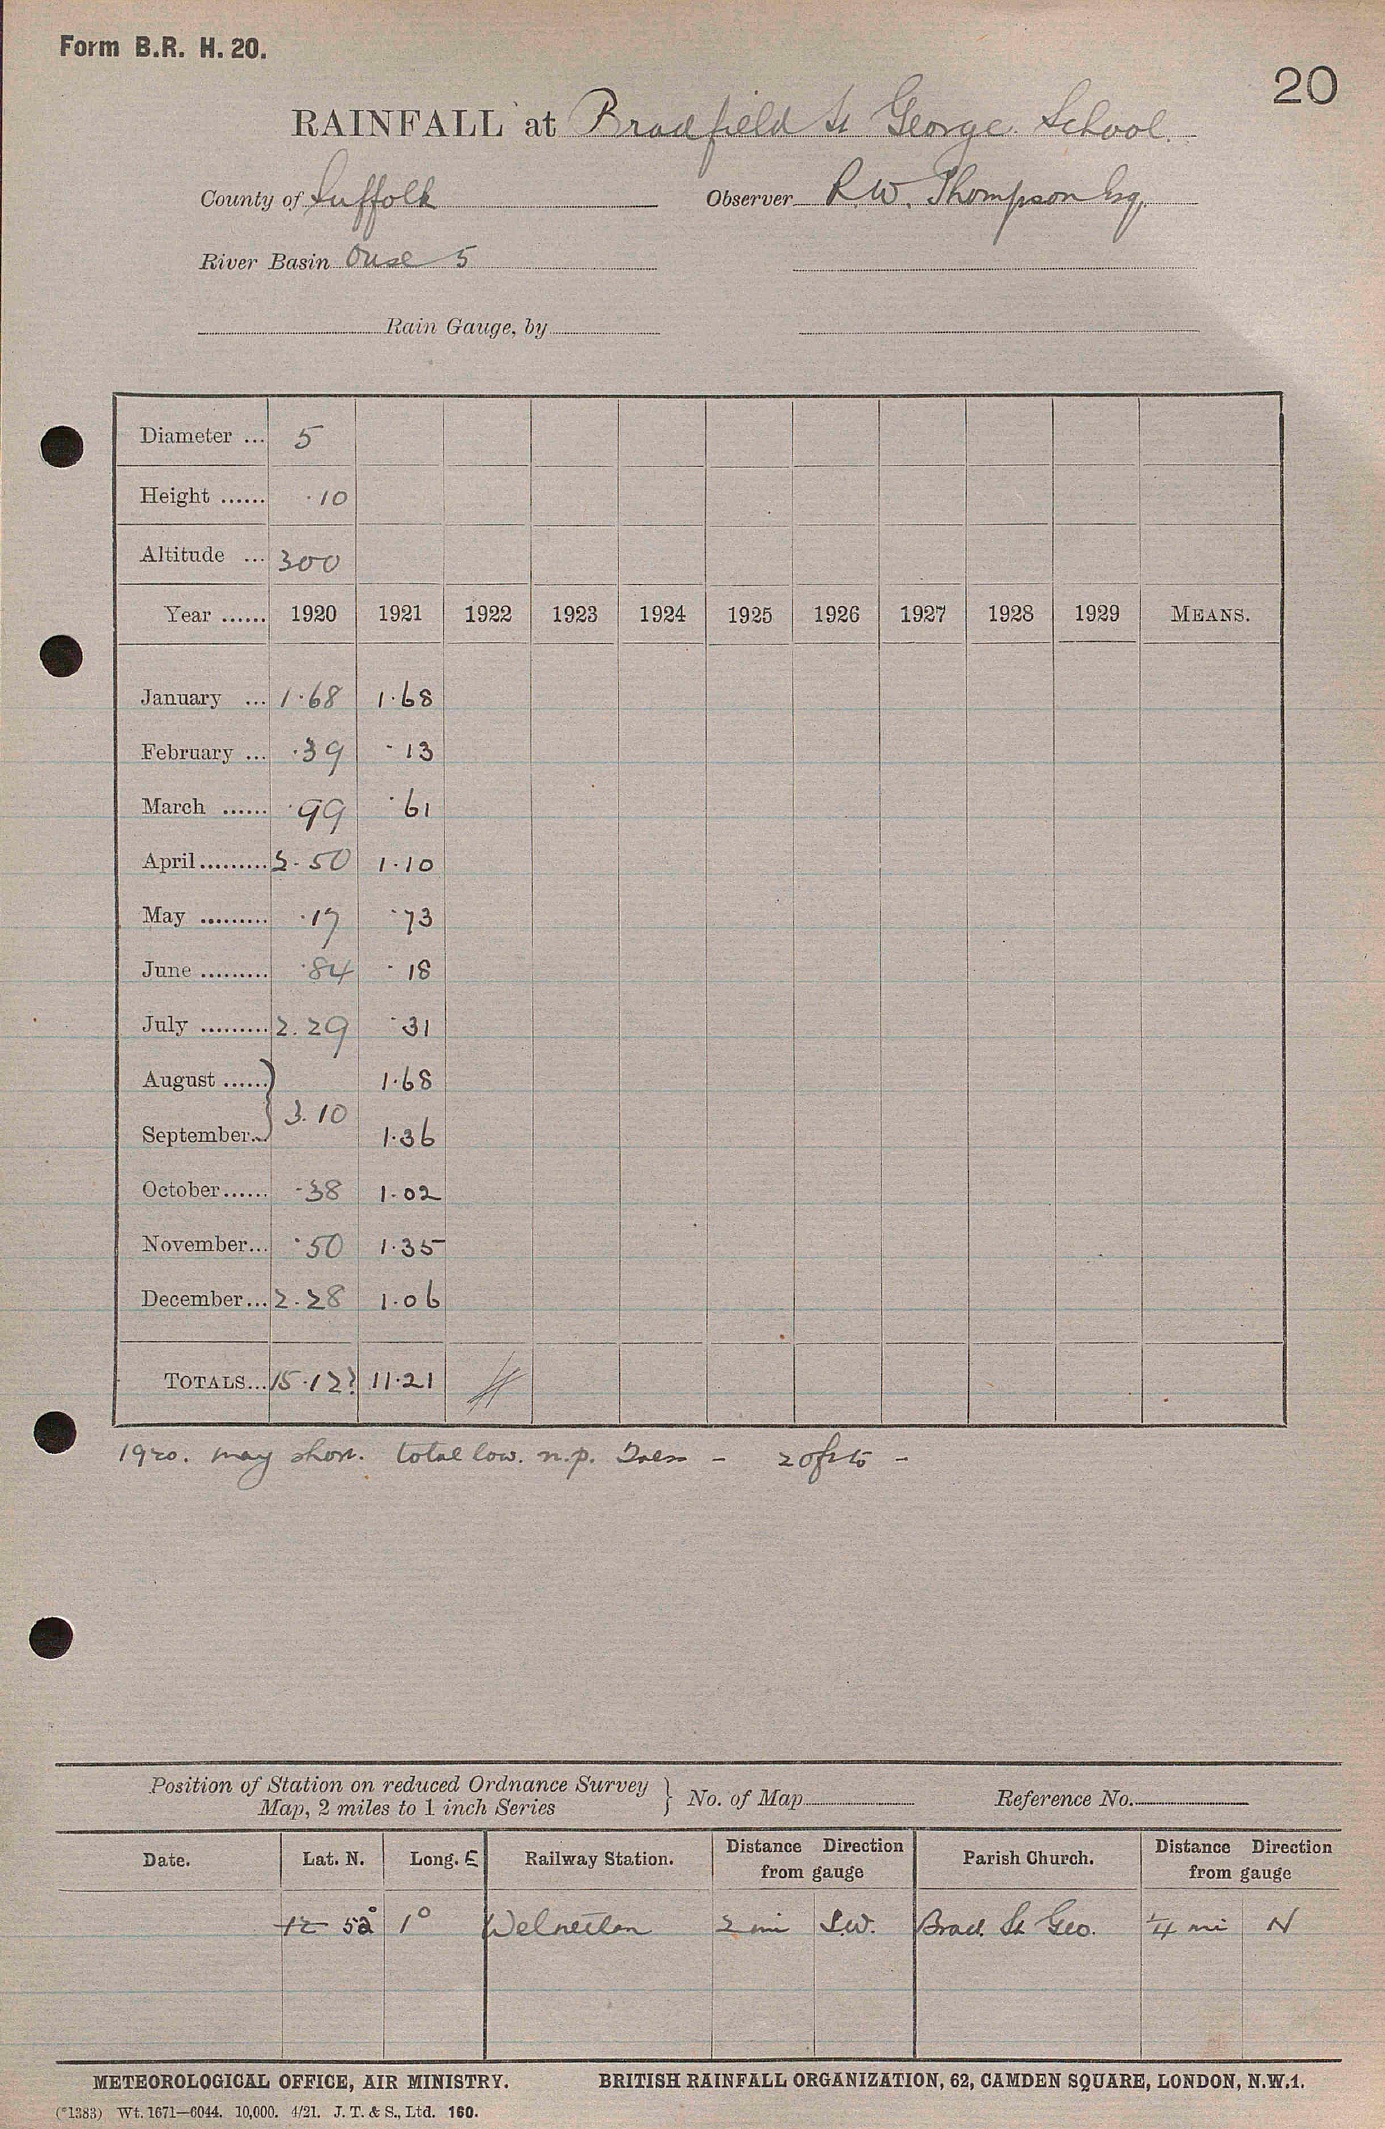 Form B.R. H. 20.
20
RAINFALL at Bradfield St George School.
County of Suffolk Observer R.W. Thompson Esq.
River Basin Ouse 5
Rain Gauge, by
Diameter ... 5
Height ...... ·10
Altitude ... 300
Year ...... 1920 1921 1922 1923 1924 1925 1926 1927 1928 1929 MEANS.
January ... 1·68 1·68
February ... ·39 ·13
March ...... ·99 ·61
April ......... 2·50 1·10
May ......... ·17 ·73
June ......... ·84 ·18
July ......... 2.29 ·31
August ...... } 1·68
3.10
September... 1·36
October...... ·38 1·02
November... ·50 1·35
December... 2·28 1·06
TOTALS... 15·12? 11·21
1920. may short. total low. n.p.
Position of Station on reduced Ordnance Survey
Map, 2 miles to 1 inch Series } No. of Map Reference No.
Date. Lat. N. Long. E Railway Station. Distance Direction from gauge Parish Church. Distance Direction from gauge
12 52° 1° 2 mi S.W. Brad. St Geo. 1/4 mi N
METEOROLOGICAL OFFICE, AIR MINISTRY. BRITISH RAINFALL ORGANIZATION, 62, CAMDEN SQUARE, LONDON, N.W.1.
(*1383) Wt. 1671—6044. 10,000. 4/21. J. T. & S., Ltd. 160.